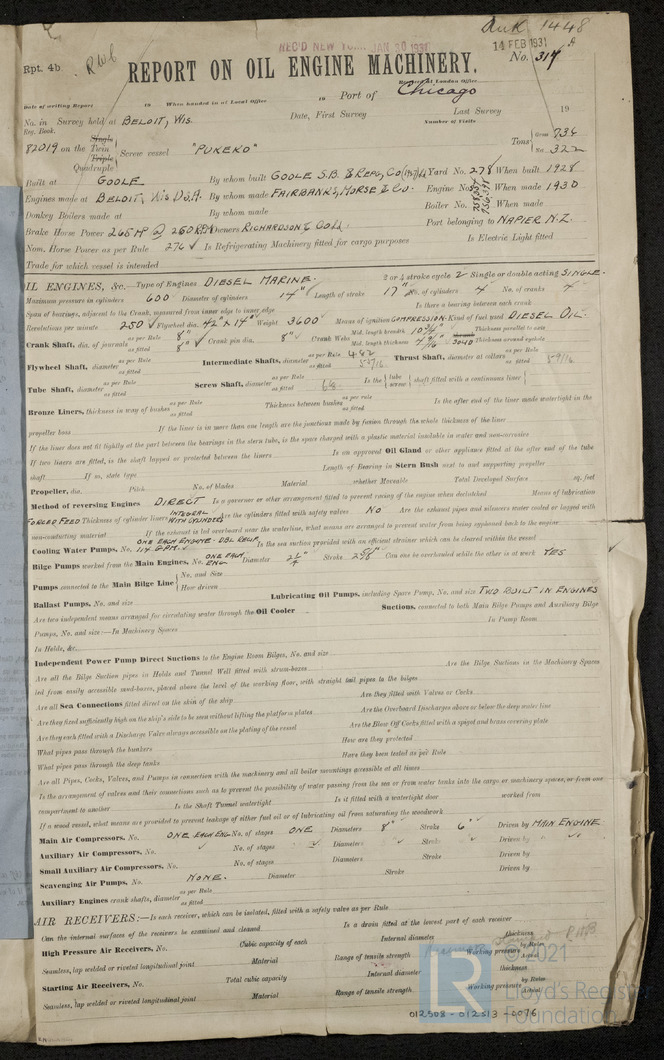 Auk 1448
REC'D NEW YO.... JAN 30 1931
14 FEB 1931
Rpt. 4b.
RWB
REPORT ON OIL ENGINE MACHINERY.
No. 317
Received at London Office
Date of writing Report 19 When handed in at Local Office 19 Port of Chicago
No. in Survey held at BELOIT, WIS. Date, First Survey Last Survey 19
Reg. Book. Number of Visits
82019 on the Single Twin Triple Quadruple Screw vessel "PUKEKO" Tons Gross 734 Net 322
Built at GOOLE By whom built GOOLE S.B. & REPG. CO (1927) Ld Yard No. 278 When built 1928
Engines made at BELOIT, WIS U.S.A. By whom made FAIRBANKS, MORSE & CO. Engine No. When made 1930
Donkey Boilers made at By whom made Boiler No. When made
Brake Horse Power 265 HP @ 250 RPM Owners RICHARDSON & CO Ld. Port belonging to NAPIER N.Z.
Nom. Horse Power as per Rule 276 Is Refrigerating Machinery fitted for cargo purposes Is Electric Light fitted
Trade for which vessel is intended
OIL ENGINES, &c. Type of Engines DIESEL MARINE. 2 or 4 stroke cycle 2 Single or double acting SINGLE.
Maximum pressure in cylinders 600 Diameter of cylinders 14" Length of stroke 17" No. of cylinders 4 No. of cranks 4
Span of bearings, adjacent to the Crank, measured from inner edge to inner edge Is there a bearing between each crank
Revolutions per minute 250 Flywheel dia. 42" x 14" Weight 3600 Means of ignition COMPRESSION Kind of fuel used DIESEL OIL.
Crank Shaft, dia. of journals as per Rule 8" as fitted 8" Crank pin dia. 8" Crank Webs Mid. length breadth 10 3/4" Mid. length thickness 4 9/16" Thickness parallel to axis Thickness around eyehole
Flywheel Shaft, diameter as per Rule as fitted Intermediate Shafts, diameter as per Rule 4.82 as fitted Thrust Shaft, diameter at collars as per Rule as fitted 5 9/16
Tube Shaft, diameter as per Rule as fitted Screw Shaft, diameter as per Rule as fitted Is the tube screw shaft fitted with a continuous liner
Bronze Liners, thickness in way of bushes as per Rule as fitted Thickness between bushes as per Rule as fitted Is the after end of the liner made watertight in the
propeller boss If the liner is in more than one length are the junctions made by fusion through the whole thickness of the liner
If the liner does not fit tightly at the part between the bearings in the stern tube, is the space charged with a plastic material insoluble in water and non-corrosive
If two liners are fitted, is the shaft lapped or protected between the liners Is an approved Oil Gland or other appliance fitted at the after end of the tube
shaft If so, state type Length of Bearing in Stern Bush next to and supporting propeller
Propeller, dia. Pitch No. of blades Material whether Moveable Total Developed Surface sq. feet
Method of reversing Engines DIRECT Is a governor or other arrangement fitted to prevent racing of the engine when declutched Means of lubrication
FORCED FEED Thickness of cylinder liners INTEGRAL WITH CYLINDERS Are the cylinders fitted with safety valves NO Are the exhaust pipes and silencers water cooled or lagged with
non-conducting material If the exhaust is led overboard near the waterline, what means are arranged to prevent water from being syphoned back to the engine
Cooling Water Pumps, No. ONE EACH ENGINE - DBL RECIP. 114 G.P.M. Is the sea suction provided with an efficient strainer which can be cleared within the vessel
Bilge Pumps worked from the Main Engines, No. ONE EACH ENG Diameter 2 1/4" Stroke 2 5/8" Can one be overhauled while the other is at work YES
Pumps connected to the Main Bilge Line No. and Size How driven
Ballast Pumps, No. and size Lubricating Oil Pumps, including Spare Pump, No. and size TWO BUILT IN ENGINES
Are two independent means arranged for circulating water through the Oil Cooler Suctions, connected to both Main Bilge Pumps and Auxiliary Bilge
Pumps, No. and size:—In Machinery Spaces In Pump Room
In Holds, &c.
Independent Power Pump Direct Suctions to the Engine Room Bilges, No. and size
Are all the Bilge Suction pipes in Holds and Tunnel Well fitted with strum-boxes Are the Bilge Suctions in the Machinery Spaces
led from easily accessible mud-boxes, placed above the level of the working floor, with straight tail pipes to the bilges
Are all Sea Connections fitted direct on the skin of the ship Are they fitted with Valves or Cocks
Are they fixed sufficiently high on the ship's side to be seen without lifting the platform plates Are the Overboard Discharges above or below the deep water line
Are they each fitted with a Discharge Valve always accessible on the plating of the vessel Are the Blow Off Cocks fitted with a spigot and brass covering plate
What pipes pass through the bunkers How are they protected
What pipes pass through the deep tanks Have they been tested as per Rule
Are all Pipes, Cocks, Valves, and Pumps in connection with the machinery and all boiler mountings accessible at all times
Is the arrangement of valves and their connections such as to prevent the possibility of water passing from the sea or from water tanks into the cargo or machinery spaces, or from one
compartment to another Is the Shaft Tunnel watertight Is it fitted with a watertight door worked from
If a wood vessel, what means are provided to prevent leakage of either fuel oil or of lubricating oil from saturating the woodwork
Main Air Compressors, No. ONE EACH ENG No. of stages ONE Diameters 8" Stroke 6" Driven by MAIN ENGINE
Auxiliary Air Compressors, No. No. of stages Diameters Stroke Driven by
Small Auxiliary Air Compressors, No. No. of stages Diameters Stroke Driven by
Scavenging Air Pumps, No. NONE. Diameter Stroke Driven by
Auxiliary Engines crank shafts, diameter as per Rule as fitted
AIR RECEIVERS:—Is each receiver, which can be isolated, fitted with a safety valve as per Rule
Can the internal surfaces of the receivers be examined and cleaned Is a drain fitted at the lowest part of each receiver
High Pressure Air Receivers, No. Cubic capacity of each Internal diameter thickness
Seamless, lap welded or riveted longitudinal joint Material Range of tensile strength Working pressure by Rules Actual
Starting Air Receivers, No. Total cubic capacity Internal diameter thickness
Seamless, lap welded or riveted longitudinal joint Material Range of tensile strength Working pressure by Rules Actual
© 2021
Lloyd's Register
Foundation
012508 - 012513 - 0076